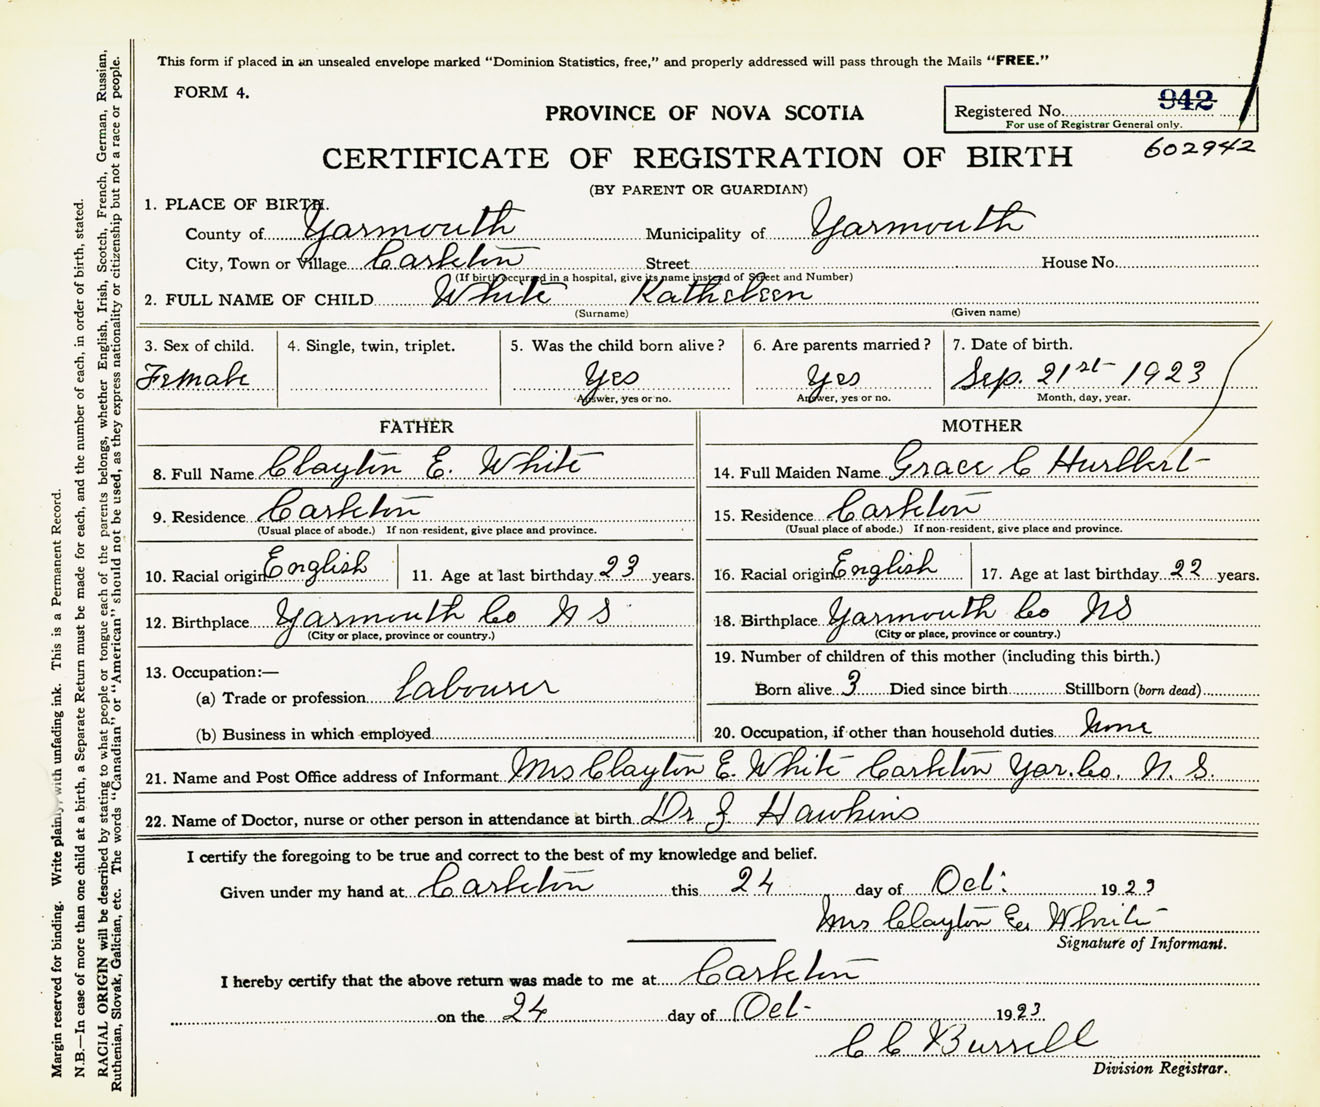 This form if placed in an unsealed envelope marked "Dominion Statistics, free," and properly addressed will pass through the Mails "FREE."
FORM 4.
PROVINCE OF NOVA SCOTIA
Registered No. 942
For use of Registrar General only.
602942
CERTIFICATE OF REGISTRATION OF BIRTH
(BY PARENT OR GUARDIAN)
1. PLACE OF BIRTH.
County of Yarmouth Municipality of Yarmouth
City, Town or Village Carleton Street House No.
(If birth occurred in a hospital, give its name instead of Street and Number)
2. FULL NAME OF CHILD White Kathleen
(Surname) (Given name)
3. Sex of child. 4. Single, twin, triplet. 5. Was the child born alive? 6. Are parents married? 7. Date of birth.
Female Yes Yes Sep. 21st 1923
Answer, yes or no. Answer, yes or no. Month, day, year.
FATHER MOTHER
8. Full Name Clayton E. White 14. Full Maiden Name Grace C Hurlbert
9. Residence Carleton 15. Residence Carleton
(Usual place of abode.) If non-resident, give place and province. (Usual place of abode.) If non-resident, give place and province.
10. Racial origin English 11. Age at last birthday 23 years. 16. Racial origin English 17. Age at last birthday 22 years.
12. Birthplace Yarmouth Co N S 18. Birthplace Yarmouth Co NS
(City or place, province or country.) (City or place, province or country.)
13. Occupation:— 19. Number of children of this mother (including this birth.)
(a) Trade or profession Labourer Born alive 3 Died since birth Stillborn (born dead)
(b) Business in which employed 20. Occupation, if other than household duties None
21. Name and Post Office address of Informant Mrs Clayton E. White Carleton Yar. Co. N. S.
22. Name of Doctor, nurse or other person in attendance at birth Dr J Hawkins
I certify the foregoing to be true and correct to the best of my knowledge and belief.
Given under my hand at Carleton this 24 day of Oct. 1923
Mrs Clayton E. White
Signature of Informant.
I hereby certify that the above return was made to me at Carleton
on the 24 day of Oct- 1923
C C Burrell
Division Registrar.
Margin reserved for binding. Write plainly, with unfading ink. This is a Permanent Record.
N.B.—In case of more than one child at a birth, a Separate Return must be made for each, and the number of each, in order of birth, stated.
RACIAL ORIGIN will be described by stating to what people or tongue each of the parents belongs, whether English, Irish, Scotch, French, German, Russian,
Ruthenian, Slovak, Galician, etc. The words "Canadian" or "American" should not be used, as they express nationality or citizenship but not a race or people.